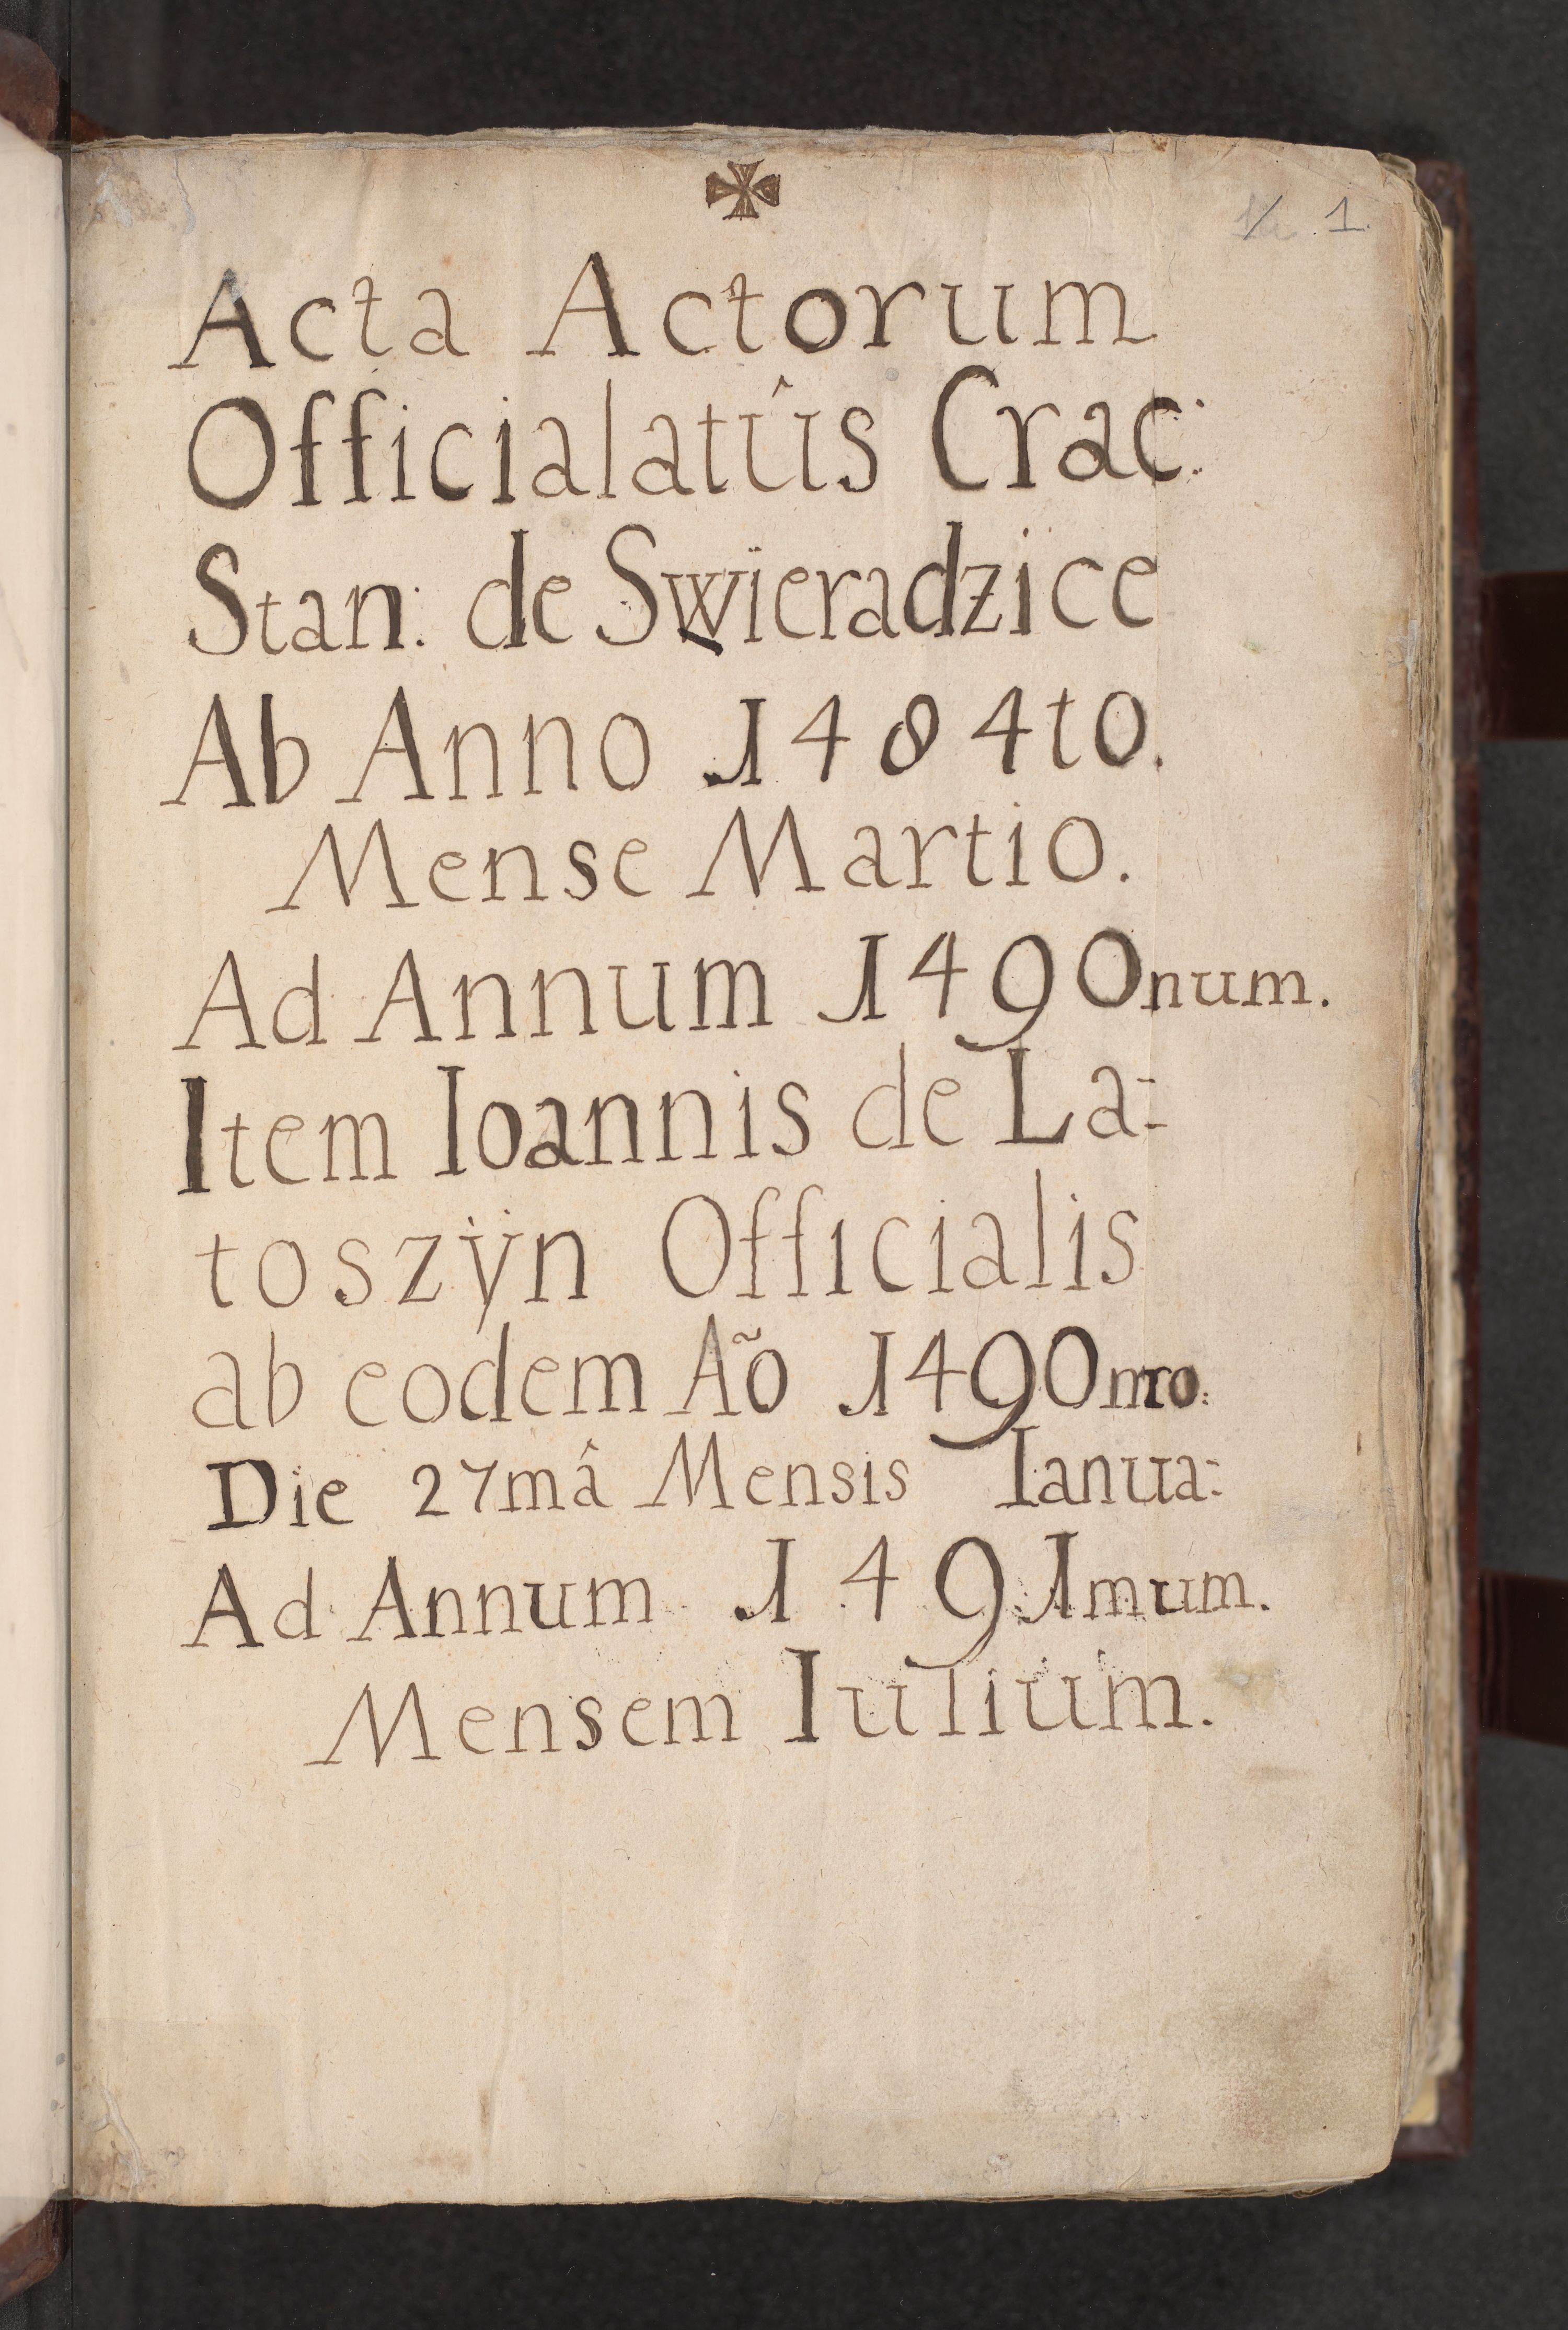 1.
Acta Actorum
Officialatûs Crac:
Stan: de Swieradzice
Ab Anno 1484to.
Mense Martio.
Ad Annum 1490num.
Item Ioannis de La=
toszÿn Officialis
ab eodem Ao͂ 1490mo.
Die 27mâ Mensis Ianua:
Ad Annum 1491mum.
Mensem Iulium.